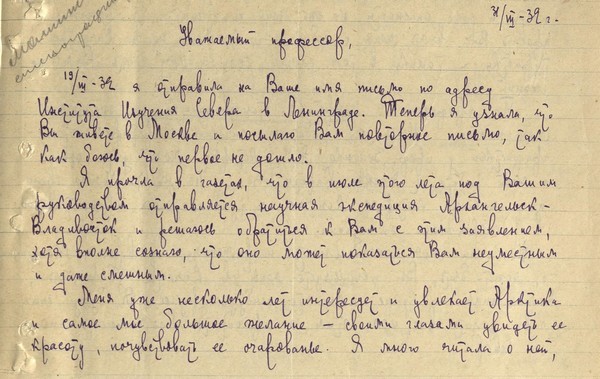 31/III-32 г.
Уважаемый профессор,
19/III-32 я отправила на Ваше имя письмо по адресу
Института Изучения Севера в Ленинграде. Теперь я узнала, что
Вы живете в Москве и посылаю Вам повторное письмо, так
как боюсь, что первое не дошло.
Я прочла в газетах, что в июле этого лета под Вашим
руководством отправляется научная экспедиция Архангельск –
Владивосток и решаюсь обратиться к Вам с этим заявлением,
хотя вполне сознаю, что оно может показаться Вам неуместным
и даже смешным.
Меня уже несколько лет интересует и увлекает Арктика
и самое мое большое желание – своими глазами увидеть ее
красоту, почувствовать ее очарованье. Я много читала о ней,